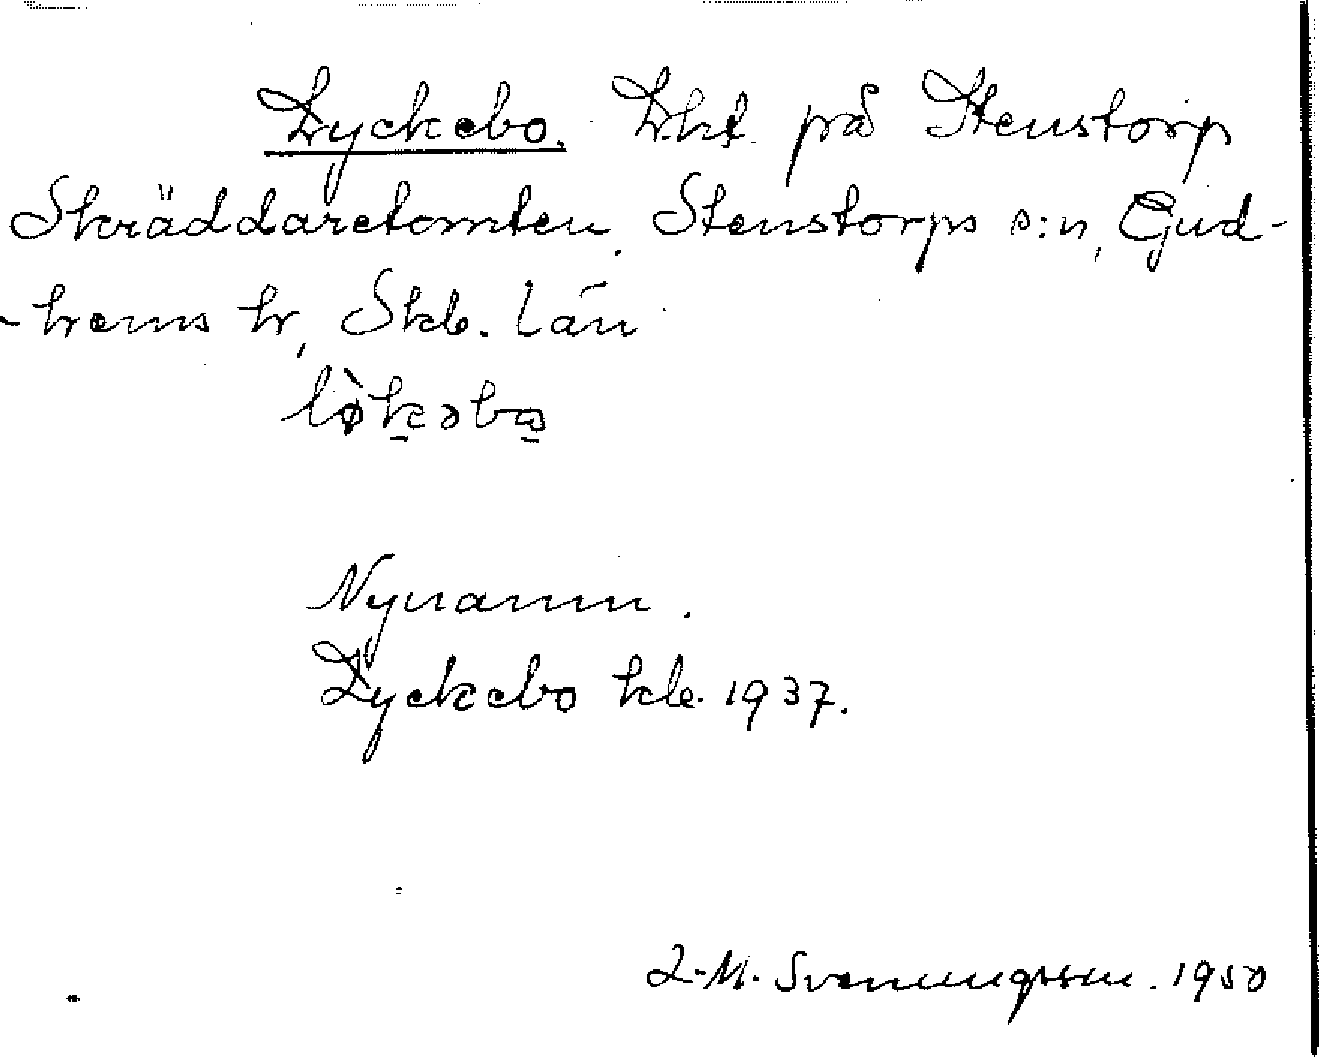 Lyckebo. Lht på Stenstorp
Skräddaretomten, Stenstorps s:n, Gud-
-hems hr, Skb. län
lø̀kəbo
Nynamn.
Lyckebo kb. 1937.
L-M. Svenungsson. 1950